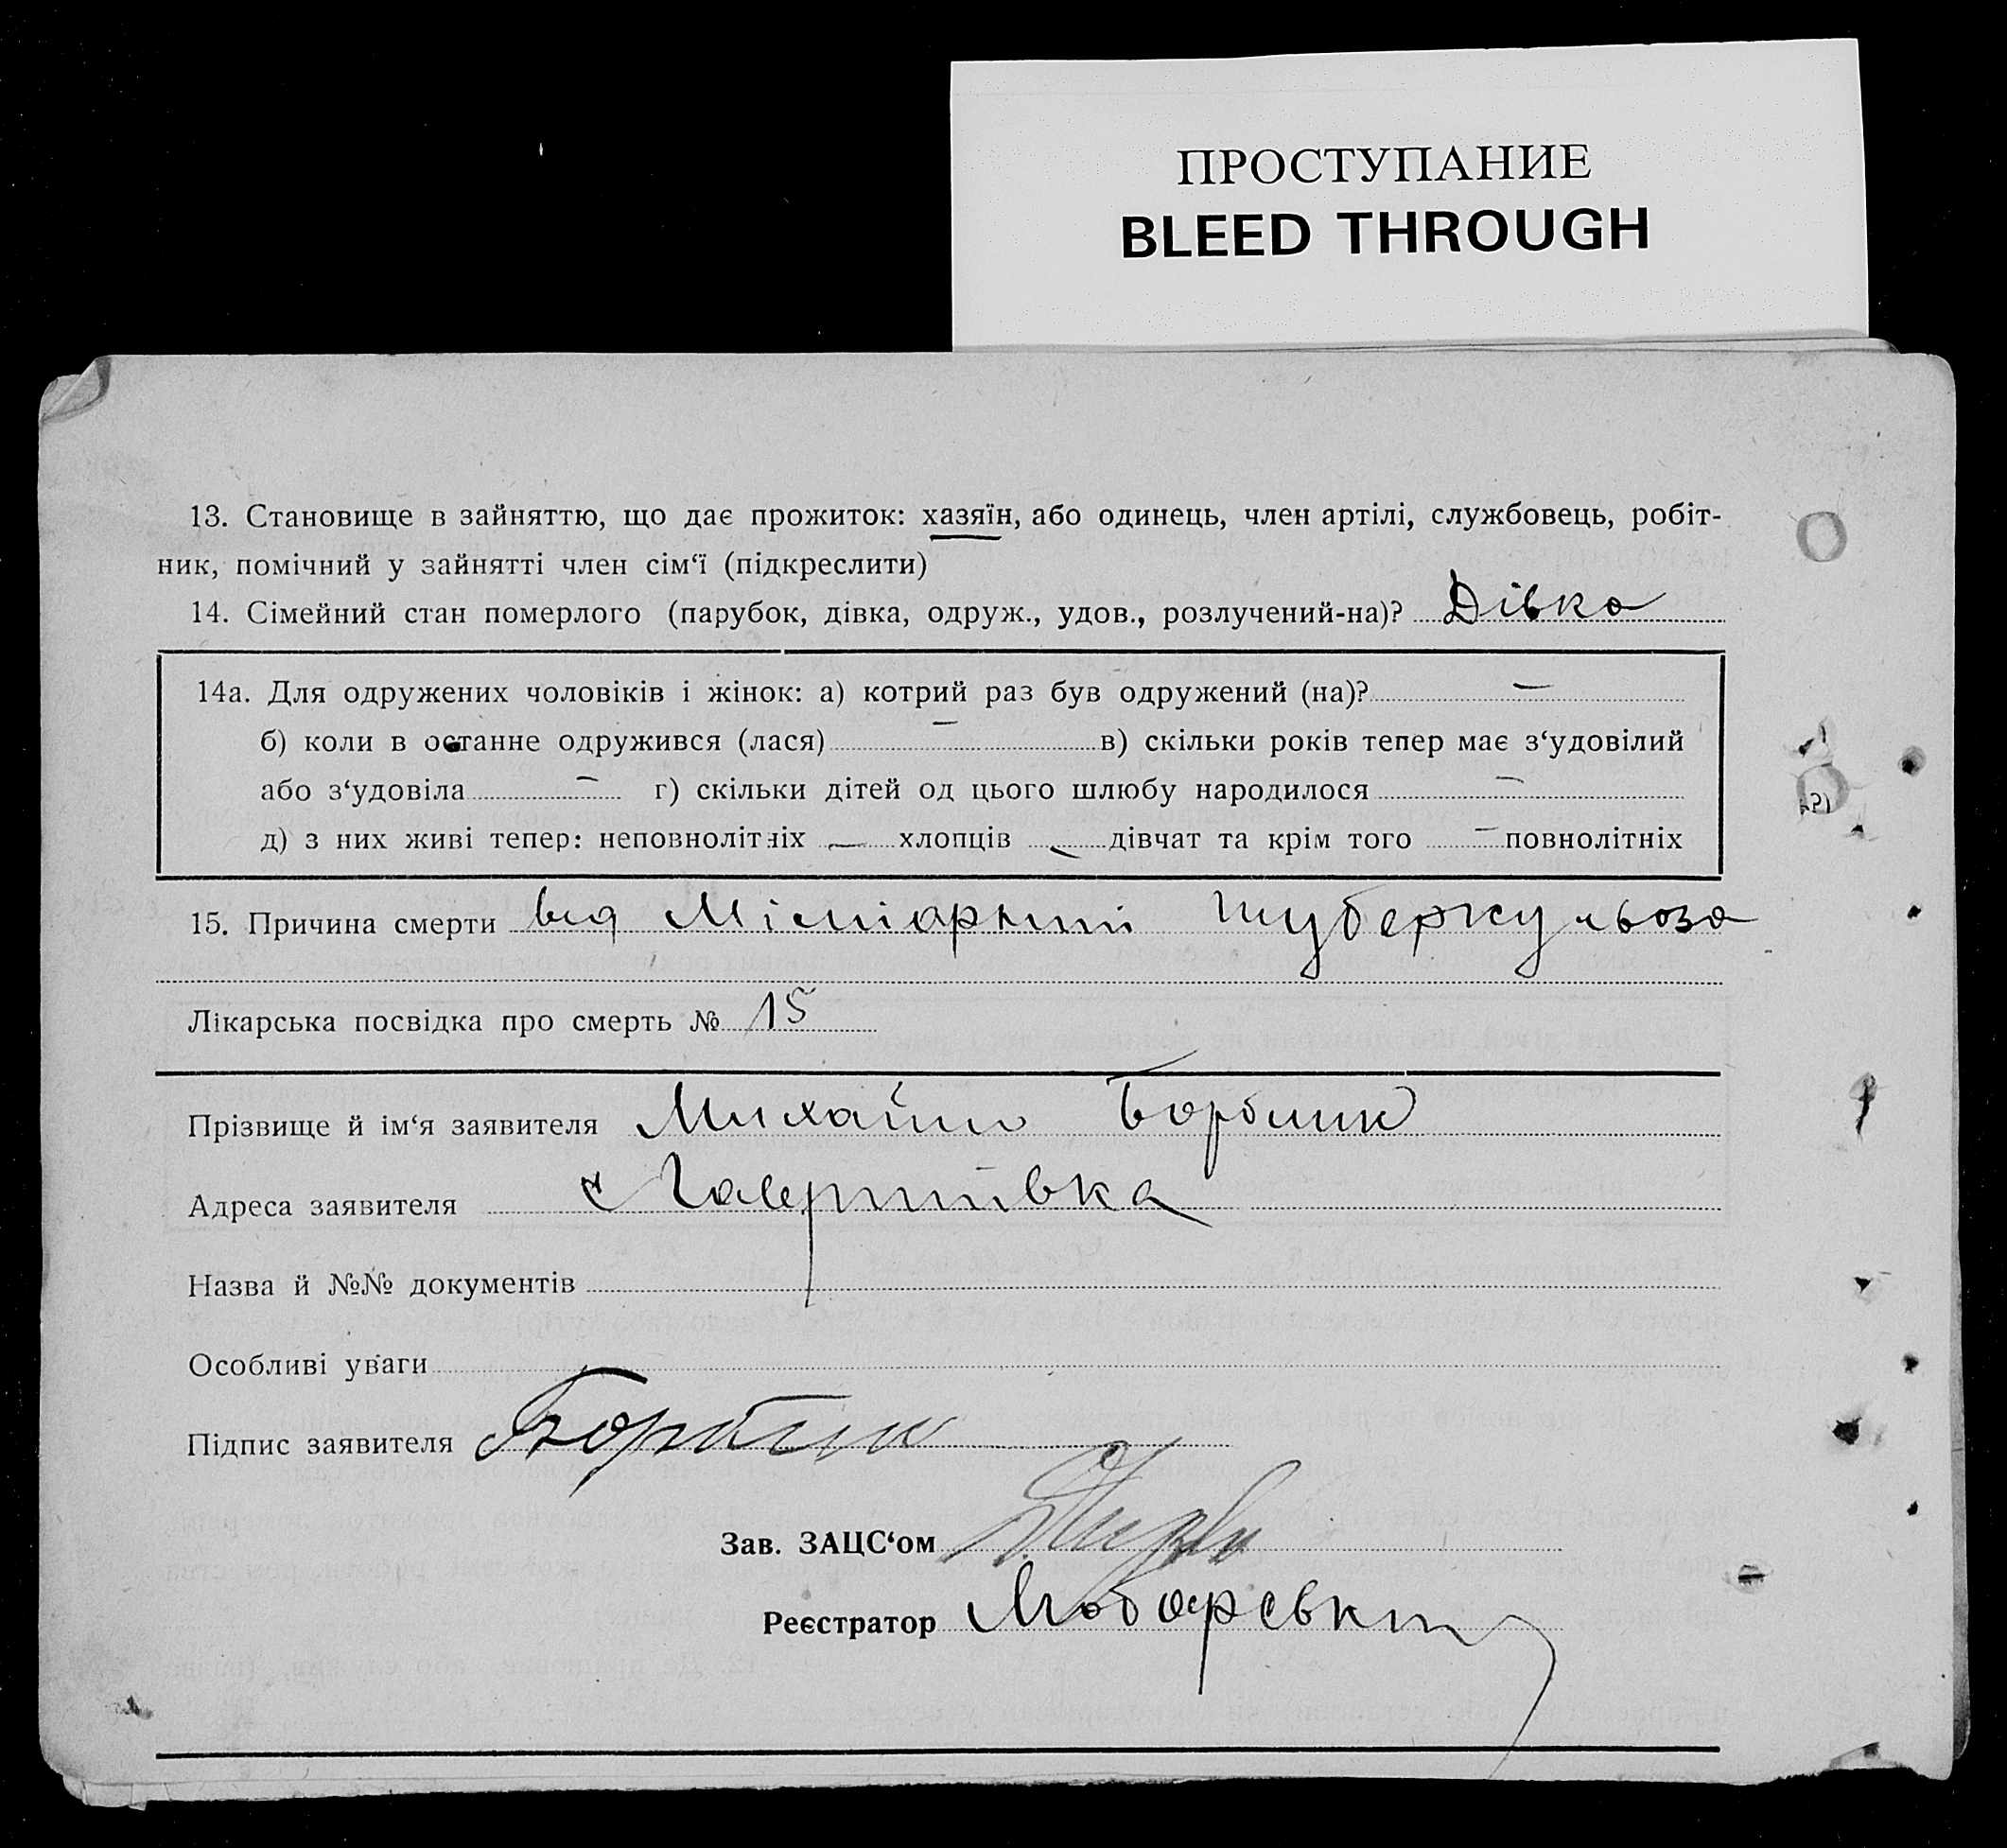 ПРОСТУПАНИЕ
BLEED THROUGH
13. Становище в зайняттю, що дає прожиток: хазяїн, або одинець, член артілі, службовець, робіт-
ник, помічний у зайнятті член сім‘ї (підкреслити)
14. Сімейний стан померлого (парубок, дівка, одруж., удов., розлучений-на)? Дівка
14а. Для одружених чоловіків і жінок: а) котрий раз був одружений (на)? —
б) коли в останне одружився (лася) — в) скільки років тепер має з‘удовілий
або з‘удовіла — г) скільки дітей од цього шлюбу народилося —
д) з них живі тепер: неповнолітніх — хлопців — дівчат та крім того — повнолітніх
15. Причина смерти від туберкульоза
Лікарська посвідка про смерть № 15
Прізвище й ім‘я заявителя Михайло
Адреса заявителя
Назва й №№ документів
Особливі уваги
Підпис заявителя
Зав. ЗАЦС‘ом
Реєстратор